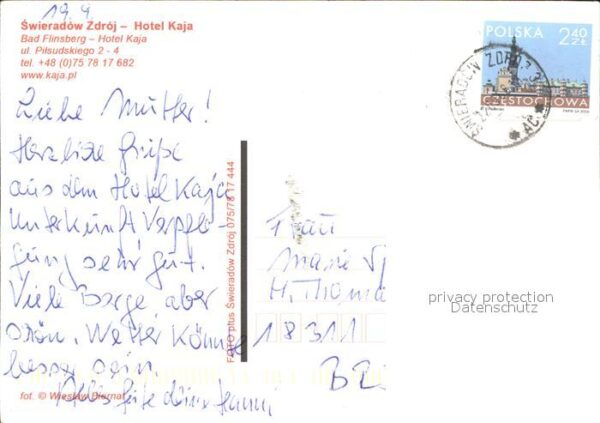 19.4
Świeradów Zdrój – Hotel Kaja
Bad Flinsberg – Hotel Kaja
ul. Piłsudskiego 2 - 4
tel. +48 (0)75 78 17 682
www.kaja.pl
POLSKA 2,40 ZŁ
CZĘSTOCHOWA
ŚWIERADÓW ZDRÓJ
Liebe Mutter!
Herzliche Grüße
aus dem Hotel Kaja
Unterkunft Verpfle-
gung sehr gut.
Viele Berge aber
schön. Wetter könnte
besser sein.
Alles Gute
FOTO plus Świeradów Zdrój 075/78 17 444
Frau
Marie
H. Thoma
18311
privacy protection
Datenschutz
fot. © Wiesław Biernat